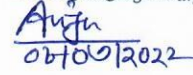 Anju
06/07/2022